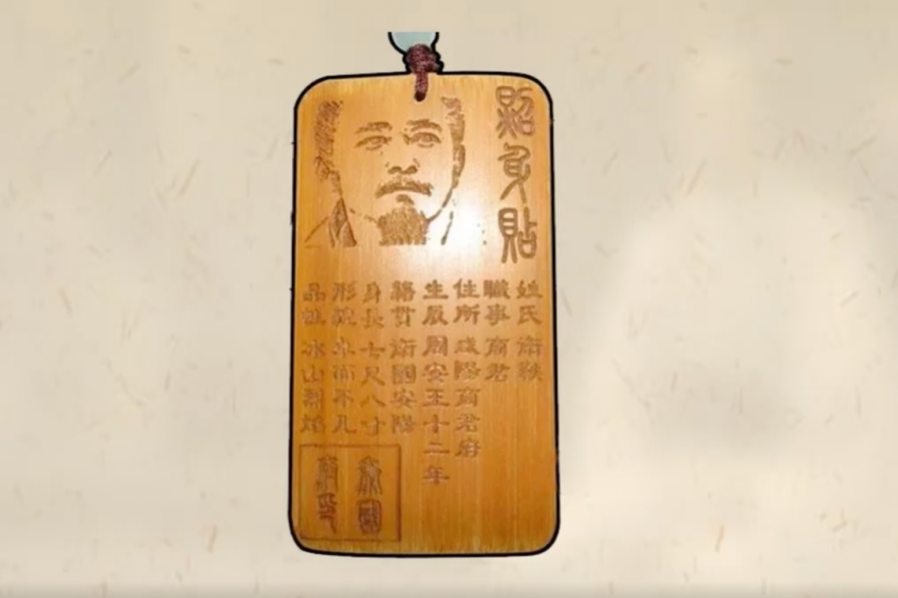 照身貼
姓氏 衛鞅
職事 商君
住所 咸陽商君府
生辰 周安王十二年
籍貫 衛國安陽
身長 七尺八寸
形貌 面不凡
品性 冰山烈焰
秦國